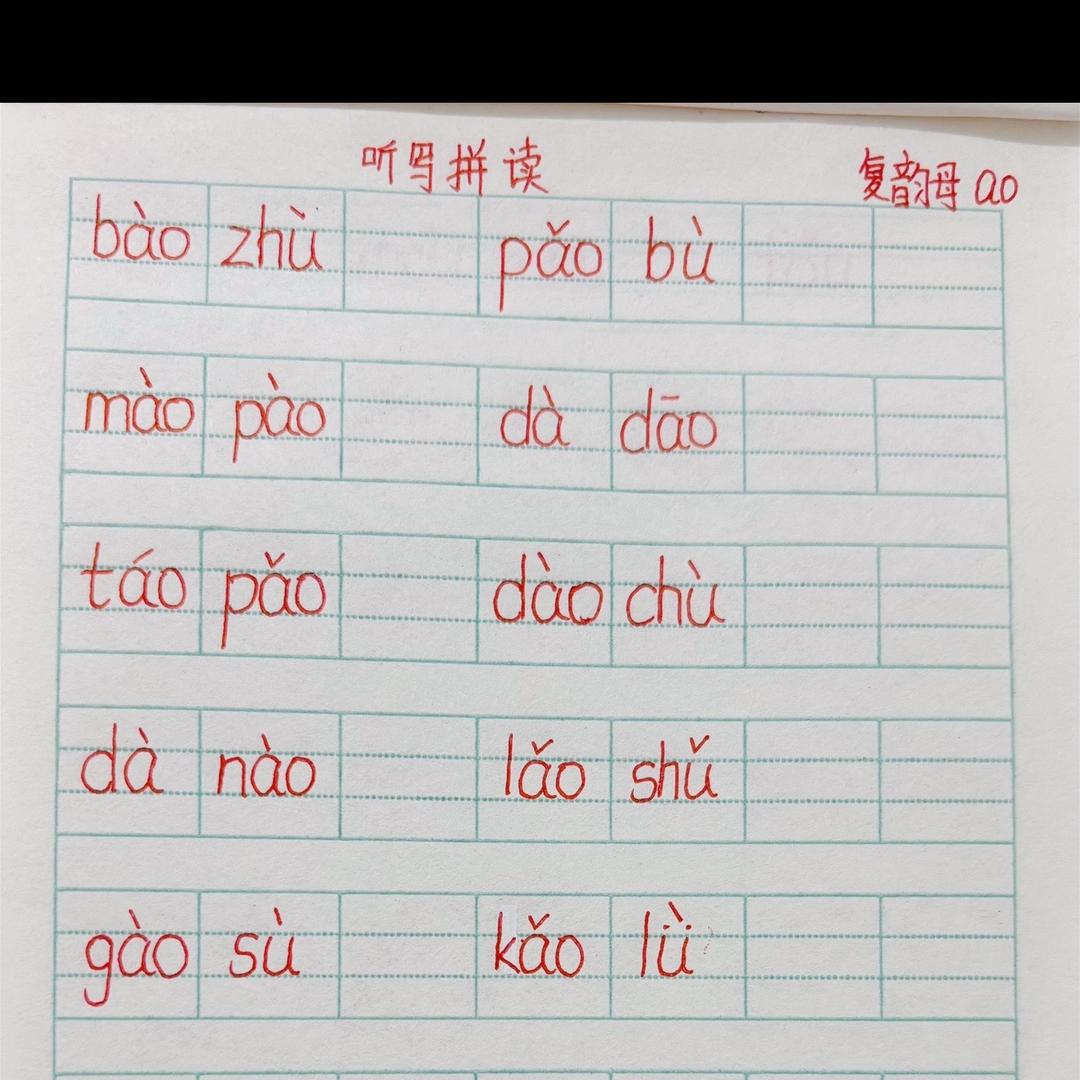 听写拼读 复韵母 ao
bào zhù pǎo bù
mào pào dà dāo
táo pǎo dào chù
dà nào lǎo shǔ
gào sù kǎo lǜ